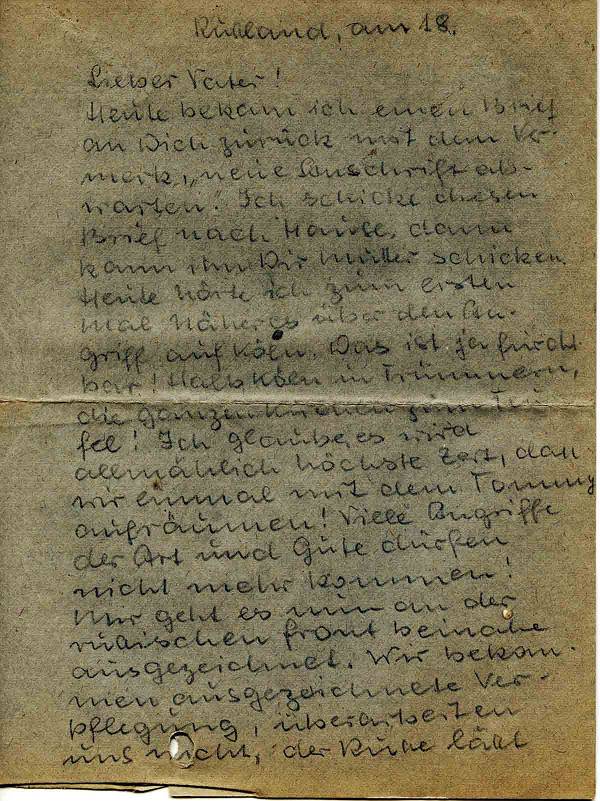 Rußland, am 18.
Lieber Vater!
Heute bekam ich einen Brief
an Dich zurück mit dem Ver-
merk, „neue Anschrift ab-
warten." Ich schicke diesen
Brief nach Hause, dann
kann ihn Dir Mutter schicken.
Heute hörte ich zum ersten
mal Näheres über den An-
griff auf Köln. Das ist ja furcht
bar! Halb Köln in Trümmern,
die ganzen Kirchen zum Teu
fel! Ich glaube, es wird
allmählich höchste Zeit, daß
wir einmal mit dem Tommy
aufräumen! Viele Angriffe
der Art und Güte dürfen
nicht mehr kommen!
Mir geht es nun an der
rußischen Front beinahe
ausgezeichnet. Wir bekom-
men ausgezeichnete Ver-
pflegung, überarbeiten
uns nicht, der Ruße läßt